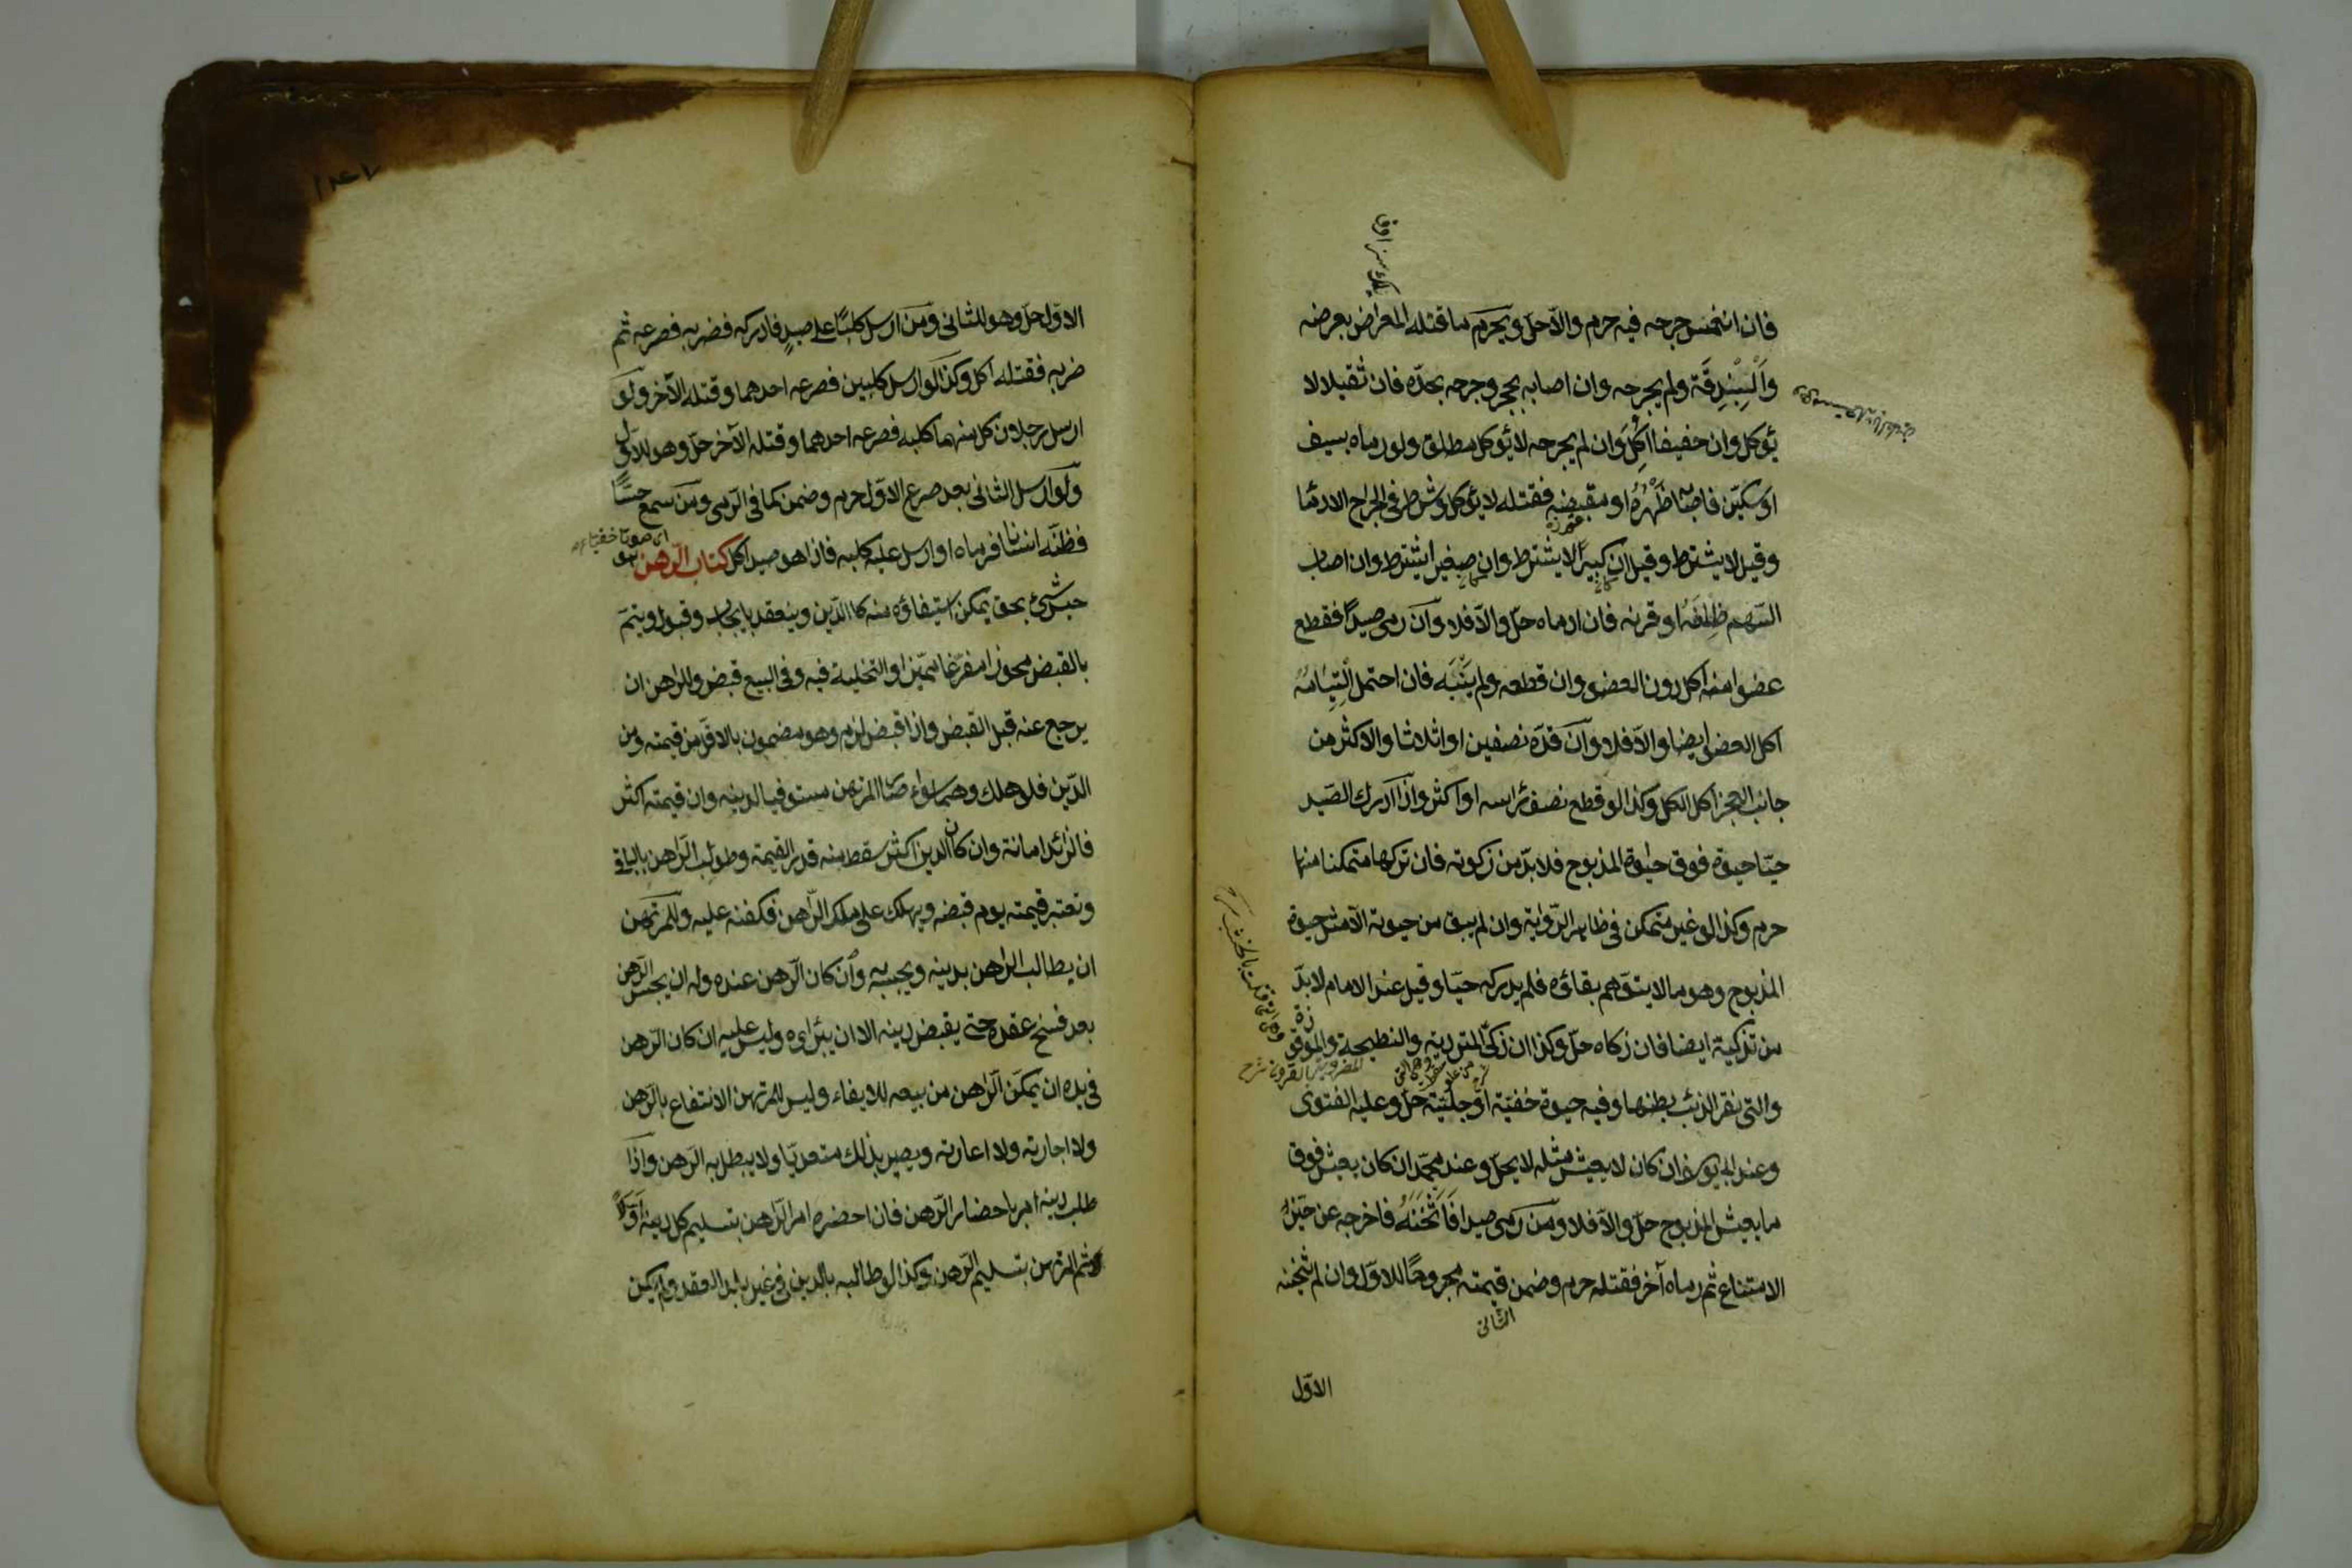 فان انغمس جرحه فيه حرم والا حل ويحرم ما قتله المعراض بعرضه
والبندقة ولم يجرحه وان اصابه بحجر وجرحه بحدّه فان ثقيلا لا
يؤكل وان خفيفا اكل وان لم يجرحه لا يؤكل مطلقا ولو رماه بسيف
او سكين فاصابه ظهره او مقبضه فقتله لا يؤكل وشرط في الجراح الادماء
وقيل لا يشترط وقيل ان كبيرا لا يشترط وان صغيرا يشترط وان اصاب
السّهم ظلفه او قرنه فان ادماه حلّ والّا فلا وان رمى صيدًا فقطع
عضوا منه اكل دون العضو وان قطعه ولم يبنه فان احتمل التيامه
اكل العضو ايضا والّا فلا وان قدّه نصفين او اثلاثا والاكثر من
جانب العجز اكل الكل وكذا لو قطع نصف رأسه او اكثر واذا ادرك الصّيد
حيّا حيوة فوق حيوة المذبوح فلا بدّ من زكوته فان تركها متمكنا منها
حرم وكذا لو غير متمكن في ظاهر الرّواية وان لم يبق من حيوته الّا مثل حيوة
المذبوح وهو ما لا يتوهم بقاؤه فلم يدركه حيّا وقيل عند الامام لا بدّ
من تذكيته ايضا فان زكاه حلّ وكذا ان زكّى المتردية والنطيحة والموقوذة
والتي نقر الذئب بطنها وفيه حيوة خفيّة او جليّة حلّ وعليه الفتوى
وعند ابي يوسف ان كان لا يعيش مثله لا يحلّ وعند محمّد ان كان يعيش فوق
ما يعيش المذبوح حلّ والّا فلا ومن رمى صيدا فاثخنه فاخرجه عن حيّز
الامتناع ثم رماه آخر فقتله حرم وضمن قيمته مجروحًا للاوّل وان لم يثخنه
الثانى
الاوّل
١٤٧
الاوّل حلّ وهو للثانى ومن ارسل كلبًا على صيدٍ فادركه فضربه فصرعه ثم
ضربه فقتله اكل وكذا لو ارسل كلبين فصرعه احدهما وقتله الآخر ولو
ارسل رجلان كل منهما كلبه فصرعه احدهما وقتله الآخر حلّ وهو للاوّل
ولو ارسل الثانى بعد صرع الاوّل حرم وضمن كما في الرّمى ومن سمع حسًّا
اى صوتا خفيّا
فظنّه انسانا فرماه او ارسل عليه كلبه فاذا هو صيد اكل كتاب الرّهن هو
حبس شئ بحق يمكن استيفاؤه منه كالدّين وينعقد بايجاب وقبول ويتمّ
بالقبض محوزا مفرّغا مميّزا والتخلية فيه وفي البيع قبض وللراهن ان
يرجع عنه قبل القبض واذا قبض لزم وهو مضمون بالاقلّ من قيمته ومن
الدّين فلو هلك وهما سواء صار المرتهن مستوفيا لدينه وان قيمته اكثر
فالزائد امانة وان كان الدين اكثر سقط منه قدر القيمة وطولب الرّاهن بالباقي
وتعتبر قيمته يوم قبضه ويهلك على ملك الرّاهن فكفنه عليه وللمرتهن
ان يطالب الراهن بدينه ويحبسه به وان كان الرّهن عنده وله ان يحبس الرّهن
بعد فسخ عقده حتى يقبض دينه الا ان يبرئه وليس عليه ان كان الرّهن
في يده ان يمكن الرّاهن من بيعه للايفاء وليس للمرتهن الانتفاع بالرّهن
ولا اجارته ولا اعارته ويصير بذلك متعديّا ولا يبطل به الرّهن واذا
طلب دينه امر باحضار الرّهن فان احضره امر الرّاهن بتسليم كل دينه اوّلًا
ثم المرتهن بتسليم الرّهن وكذا لو طالبه بالدين في غير بلد العقد ولم يكن